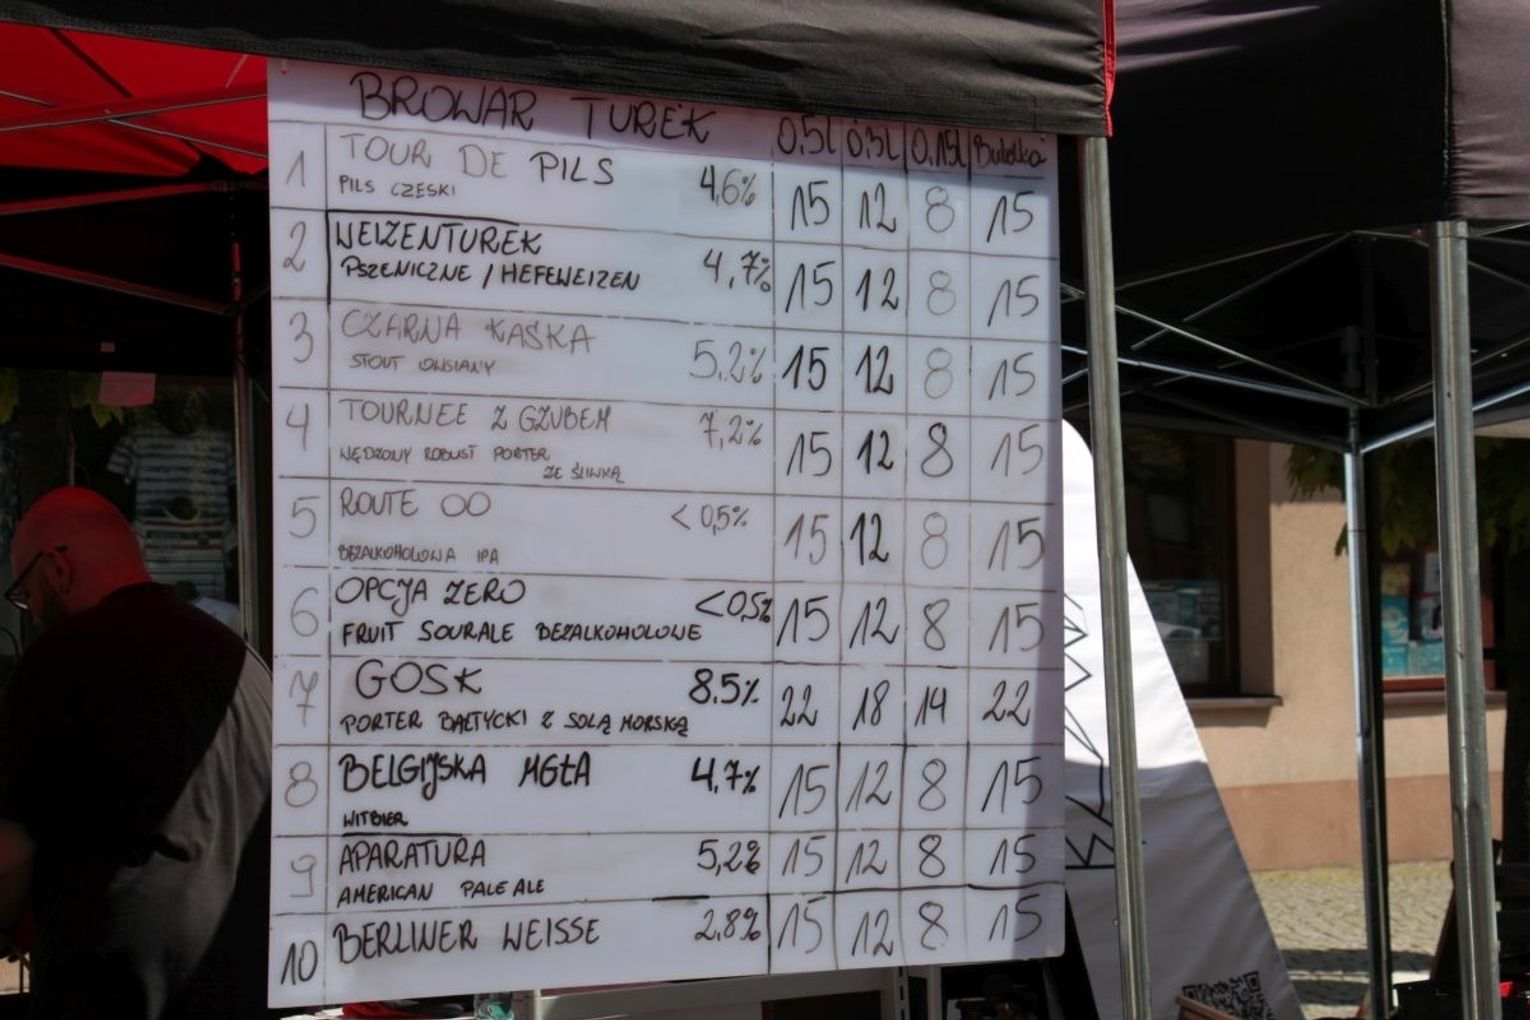 BROWAR TUREK 0,5l 0,3l 0,15l Butelka
1 TOUR DE PILS 4,6% 15 12 8 15
PILS CZESKI
2 WEIZENTUREK 4,7% 15 12 8 15
PSZENICZNE / HEFEWEIZEN
3 CZARNA KAŚKA 5,2% 15 12 8 15
STOUT OWSIANY
4 TOURNEE Z GZUBEM 7,2% 15 12 8 15
WĘDZONY ROBUST PORTER
ZE ŚLIWKĄ
5 ROUTE 00 < 0,5% 15 12 8 15
BEZALKOHOLOWA IPA
6 OPCJA ZERO <0,5% 15 12 8 15
FRUIT SOURALE BEZALKOHOLOWE
7 GOSK 8.5% 22 18 14 22
PORTER BAŁTYCKI Z SOLĄ MORSKĄ
8 BELGIJSKA MGŁA 4,7% 15 12 8 15
WITBIER
9 APARATURA 5,2% 15 12 8 15
AMERICAN PALE ALE
10 BERLINER WEISSE 2,8% 15 12 8 15